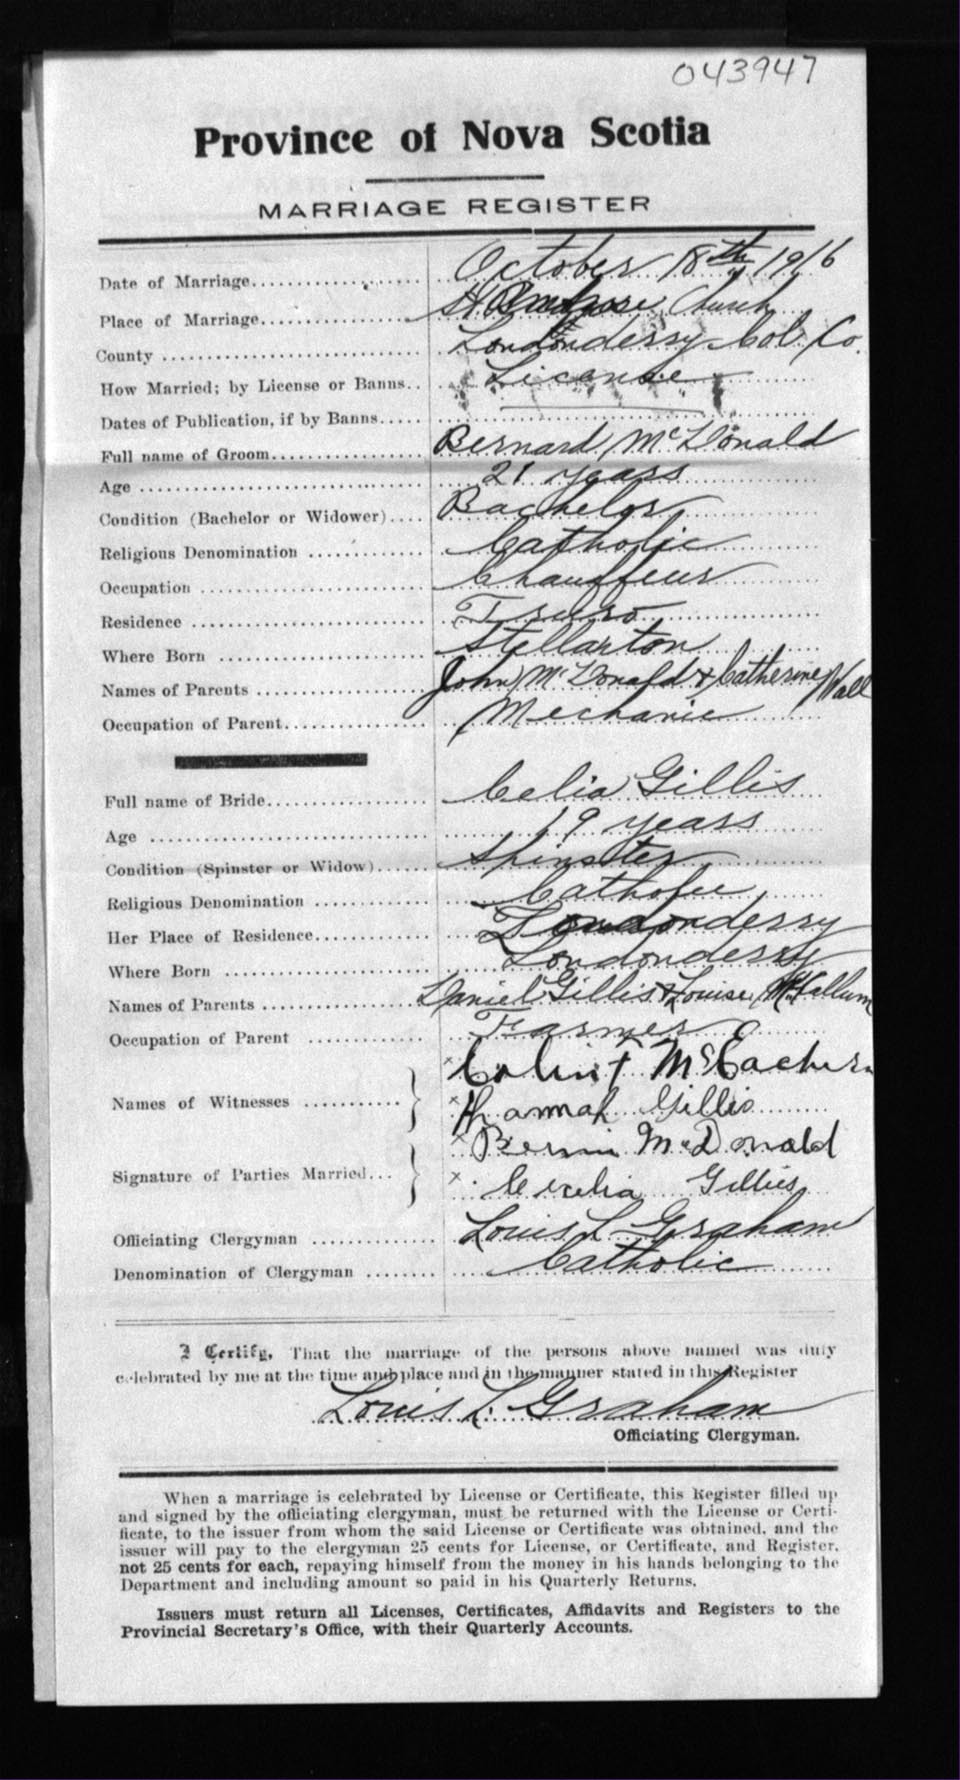 043947
Province of Nova Scotia
MARRIAGE REGISTER
Date of Marriage.................... October 18th 1916
Place of Marriage.................... St Ambrose Church
County .................... Londonderry Col. Co.
How Married; by License or Banns.. License
Dates of Publication, if by Banns.....
Full name of Groom.................. Bernard McDonald
Age .................... 21 years
Condition (Bachelor or Widower).... Bachelor
Religious Denomination ............ Catholic
Occupation .................... Chauffeur
Residence .................... Truro
Where Born .................... Stellarton
Names of Parents .................. John McDonald & Catherine Wall
Occupation of Parent................ Mechanic
Full name of Bride.................. Celia Gillis
Age .................... 19 years
Condition (Spinster or Widow)...... Spinster
Religious Denomination ............ Catholic
Her Place of Residence............. Londonderry
Where Born .................... Londonderry
Names of Parents .................. Daniel Gillis & Louise McCallum
Occupation of Parent ............ Farmer
x Colin F McEachern
Names of Witnesses ...........
x Hannah Gillis
x Bernin McDonald
Signature of Parties Married...
x Cecelia Gillies
Officiating Clergyman ............. Louis L Graham
Denomination of Clergyman ........ Catholic
I Certify, That the marriage of the persons above named was duly
celebrated by me at the time and place and in the manner stated in this Register
Louis L. Graham
Officiating Clergyman.
When a marriage is celebrated by License or Certificate, this Register filled up
and signed by the officiating clergyman, must be returned with the License or Certi-
ficate, to the issuer from whom the said License or Certificate was obtained, and the
issuer will pay to the clergyman 25 cents for License, or Certificate, and Register,
not 25 cents for each, repaying himself from the money in his hands belonging to the
Department and including amount so paid in his Quarterly Returns.
Issuers must return all Licenses, Certificates, Affidavits and Registers to the
Provincial Secretary's Office, with their Quarterly Accounts.